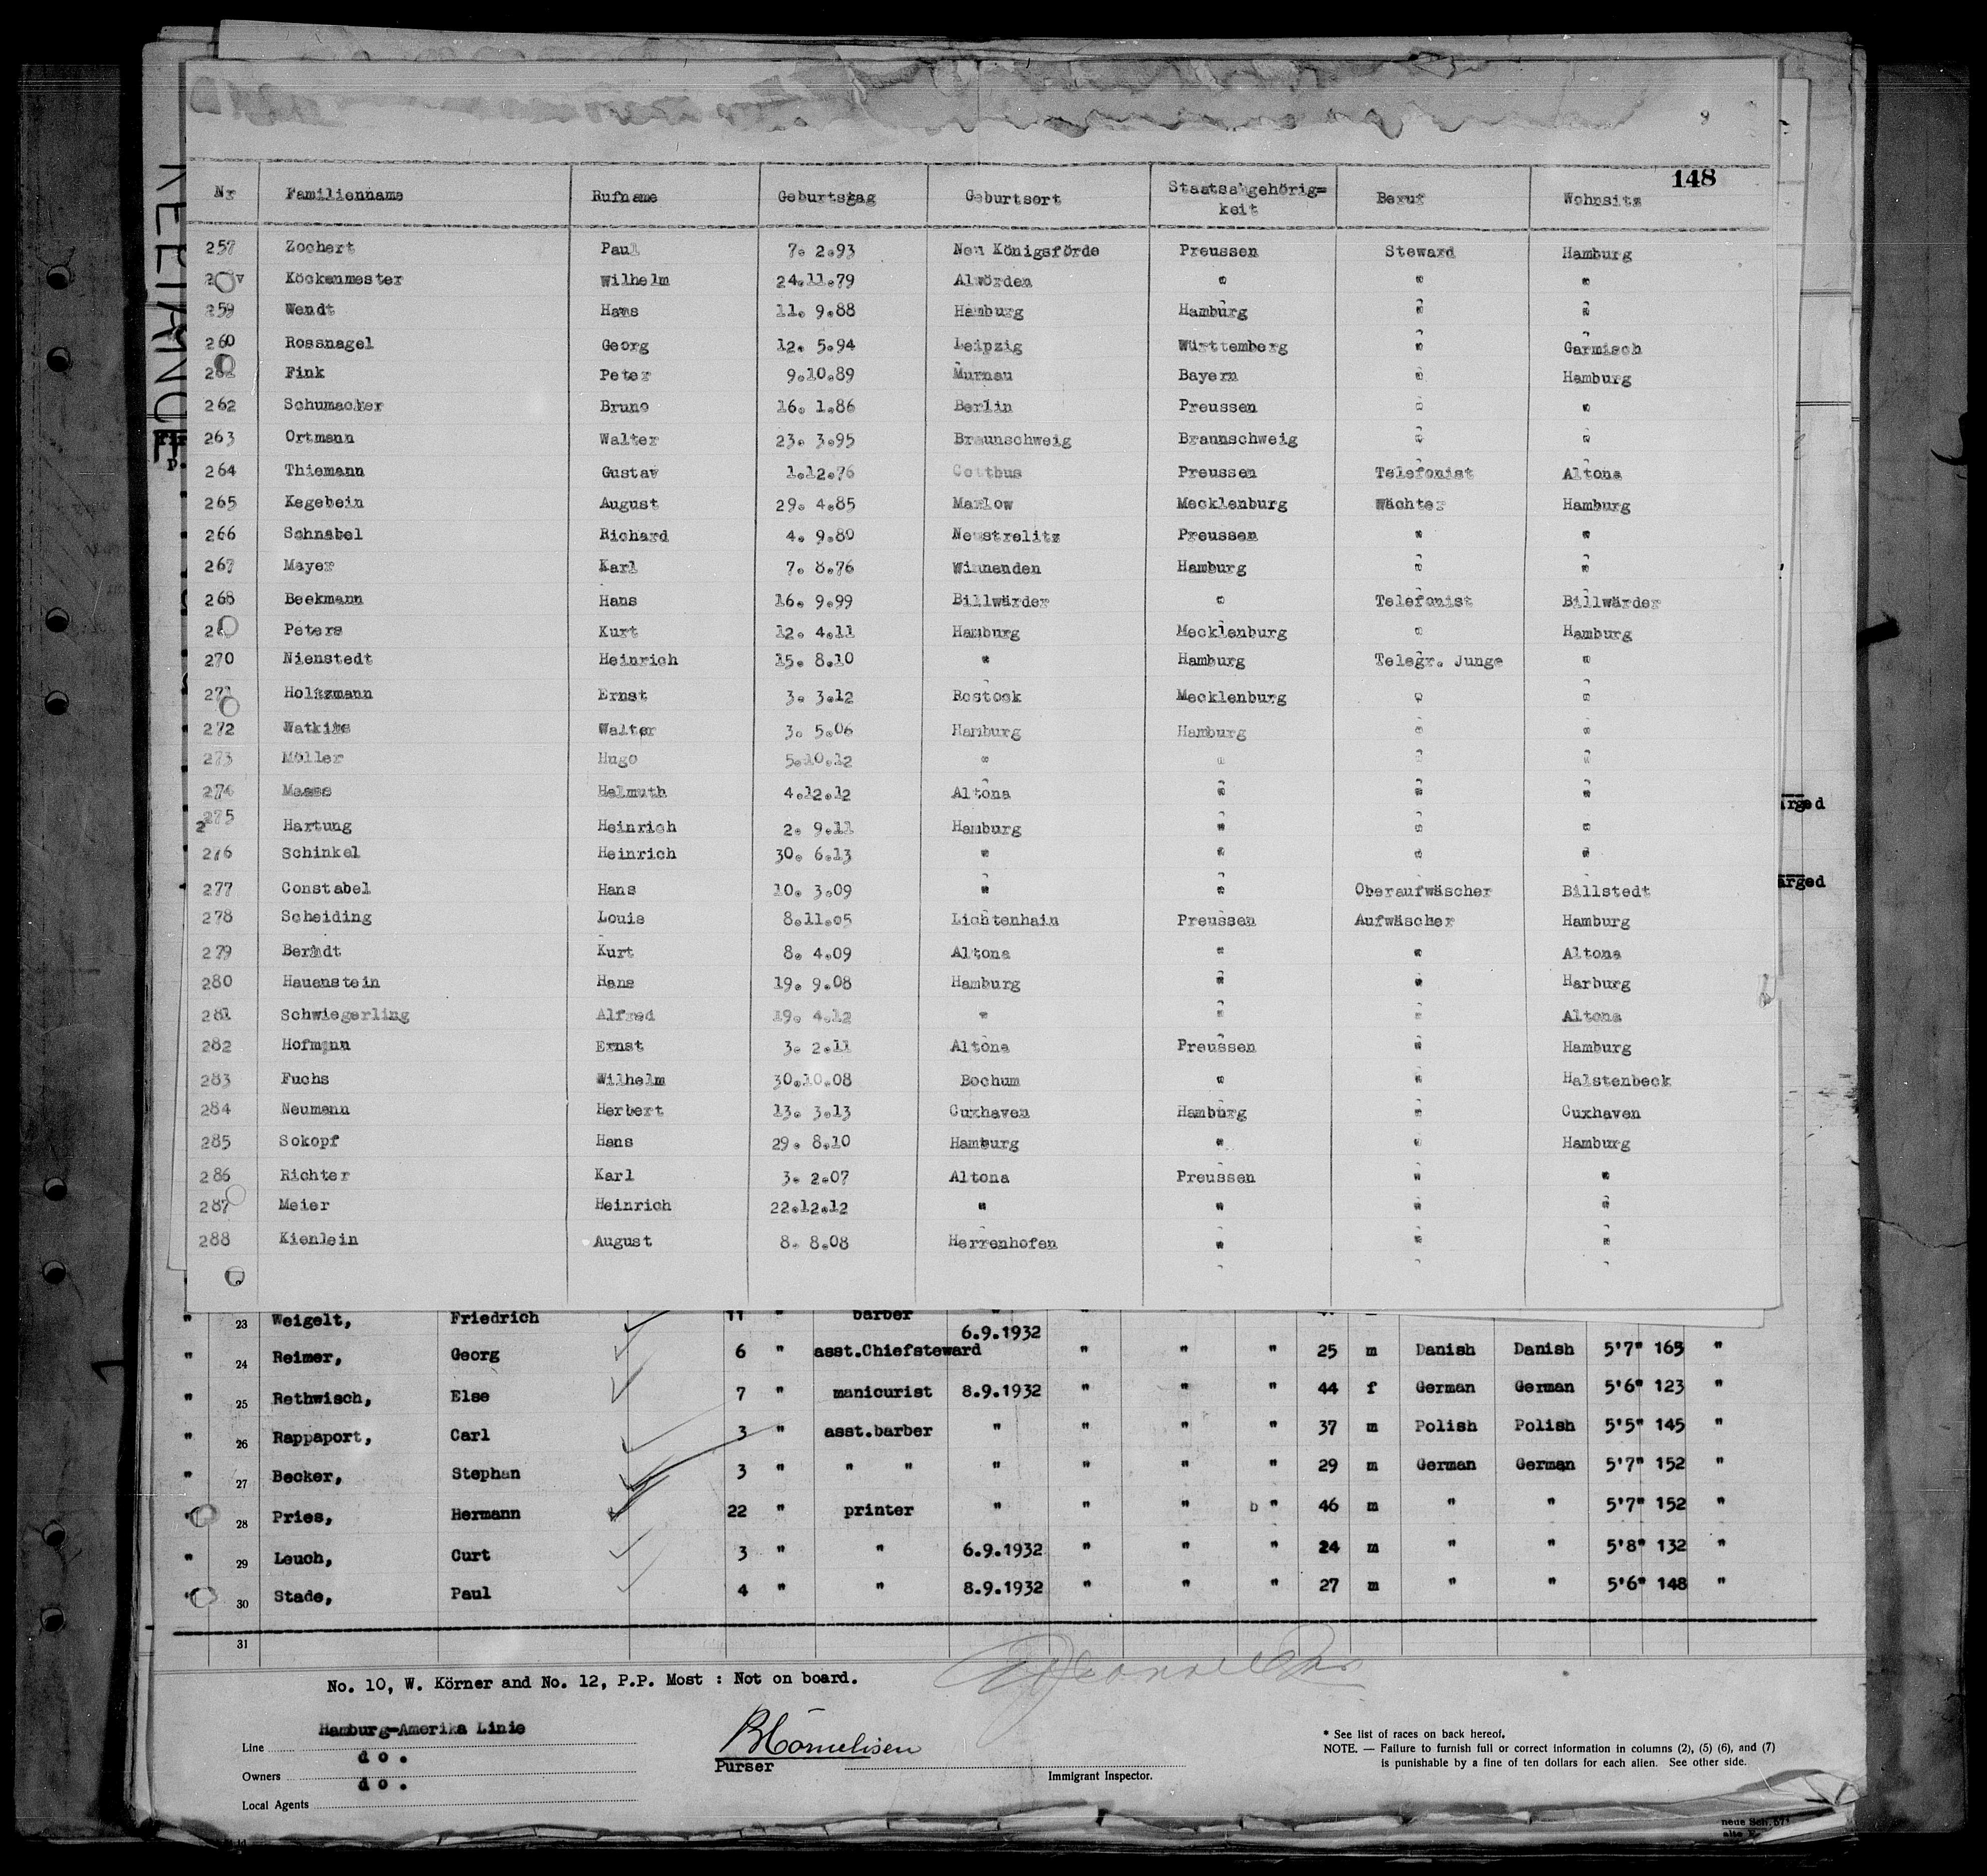 9
148
Nr Familienname Rufname Geburtstag Geburtsort Staatsangehörig=keit Beruf Wohnsitz
257 Zochert Paul 7. 2.93 Neu Königsförde Preussen Steward Hamburg
Köckenmester Wilhelm 24.11.79 Alwörden " " "
259 Wendt Hans 11. 9.88 Hamburg Hamburg " "
260 Rossnagel Georg 12. 5.94 Leipzig Württemberg " Garmisch
261 Fink Peter 9.10.89 Murnau Bayern " Hamburg
262 Schumacher Bruno 16. 1.86 Berlin Preussen " "
263 Ortmann Walter 23. 3.95 Braunschweig Braunschweig " "
264 Thiemann Gustav 1.12.76 Cottbus Preussen Telefonist Altona
265 Kegebein August 29. 4.85 Marlow Mecklenburg Wächter Hamburg
266 Schnabel Richard 4. 9.80 Neustrelitz Preussen " "
267 Mayer Karl 7. 8.76 Winnenden Hamburg " "
268 Beekmann Hans 16. 9.99 Billwärder " Telefonist Billwärder
Peters Kurt 12. 4.11 Hamburg Mecklenburg " Hamburg
270 Nienstedt Heinrich 15. 8.10 " Hamburg Telegr. Junge "
271 Holtzmann Ernst 3. 3.12 Rostock Mecklenburg " "
272 Watkins Walter 3. 5.06 Hamburg Hamburg " "
273 Möller Hugo 5.10.12 " " " "
274 Maass Helmuth 4.12.12 Altona " " "
275 Hartung Heinrich 2. 9.11 Hamburg " " "
276 Schinkel Heinrich 30. 6.13 " " " "
277 Constabel Hans 10. 3.09 " " Oberaufwäscher Billstedt
278 Scheiding Louis 8.11.05 Lichtenhain Preussen Aufwäscher Hamburg
279 Berndt Kurt 8. 4.09 Altona " " Altona
280 Hauenstein Hans 19. 9.08 Hamburg " " Harburg
281 Schwiegerling Alfred 19. 4.12 " " " Altona
282 Hofmann Ernst 3. 2.11 Altona Preussen " Hamburg
283 Fuchs Wilhelm 30.10.08 Bochum " " Halstenbeck
284 Neumann Herbert 13. 3.13 Cuxhaven Hamburg " Cuxhaven
285 Sokopf Hans 29. 8.10 Hamburg " " Hamburg
286 Richter Karl 3. 2.07 Altona Preussen " "
287 Meier Heinrich 22.12.12 " " " "
288 Kienlein August 8. 8.08 Herrenhofen " " "
" 23 Weigelt, Friedrich 11 " barber "
" 24 Reimer, Georg 6 " asst.Chiefsteward 6.9.1932 " " " 25 m Danish Danish 5'7" 165 "
" 25 Rethwisch, Else 7 " manicurist 8.9.1932 " " " 44 f German German 5'6" 123 "
" 26 Rappaport, Carl 3 " asst.barber " " " " 37 m Polish Polish 5'5" 145 "
" 27 Becker, Stephan 3 " " " " " " " 29 m German German 5'7" 152 "
" 28 Pries, Hermann 22 " printer " " " b " 46 m " " 5'7" 152 "
" 29 Leuch, Curt 3 " " 6.9.1932 " " " 24 m " " 5'8" 132 "
" 30 Stade, Paul 4 " " 8.9.1932 " " " 27 m " " 5'6" 148 "
31
No. 10, W. Körner and No. 12, P.P. Most : Not on board.
Line Hamburg-Amerika Linie
Owners do.
Local Agents do.
Purser
Immigrant Inspector.
* See list of races on back hereof.
NOTE. — Failure to furnish full or correct information in columns (2), (5) (6), and (7)
is punishable by a fine of ten dollars for each alien. See other side.